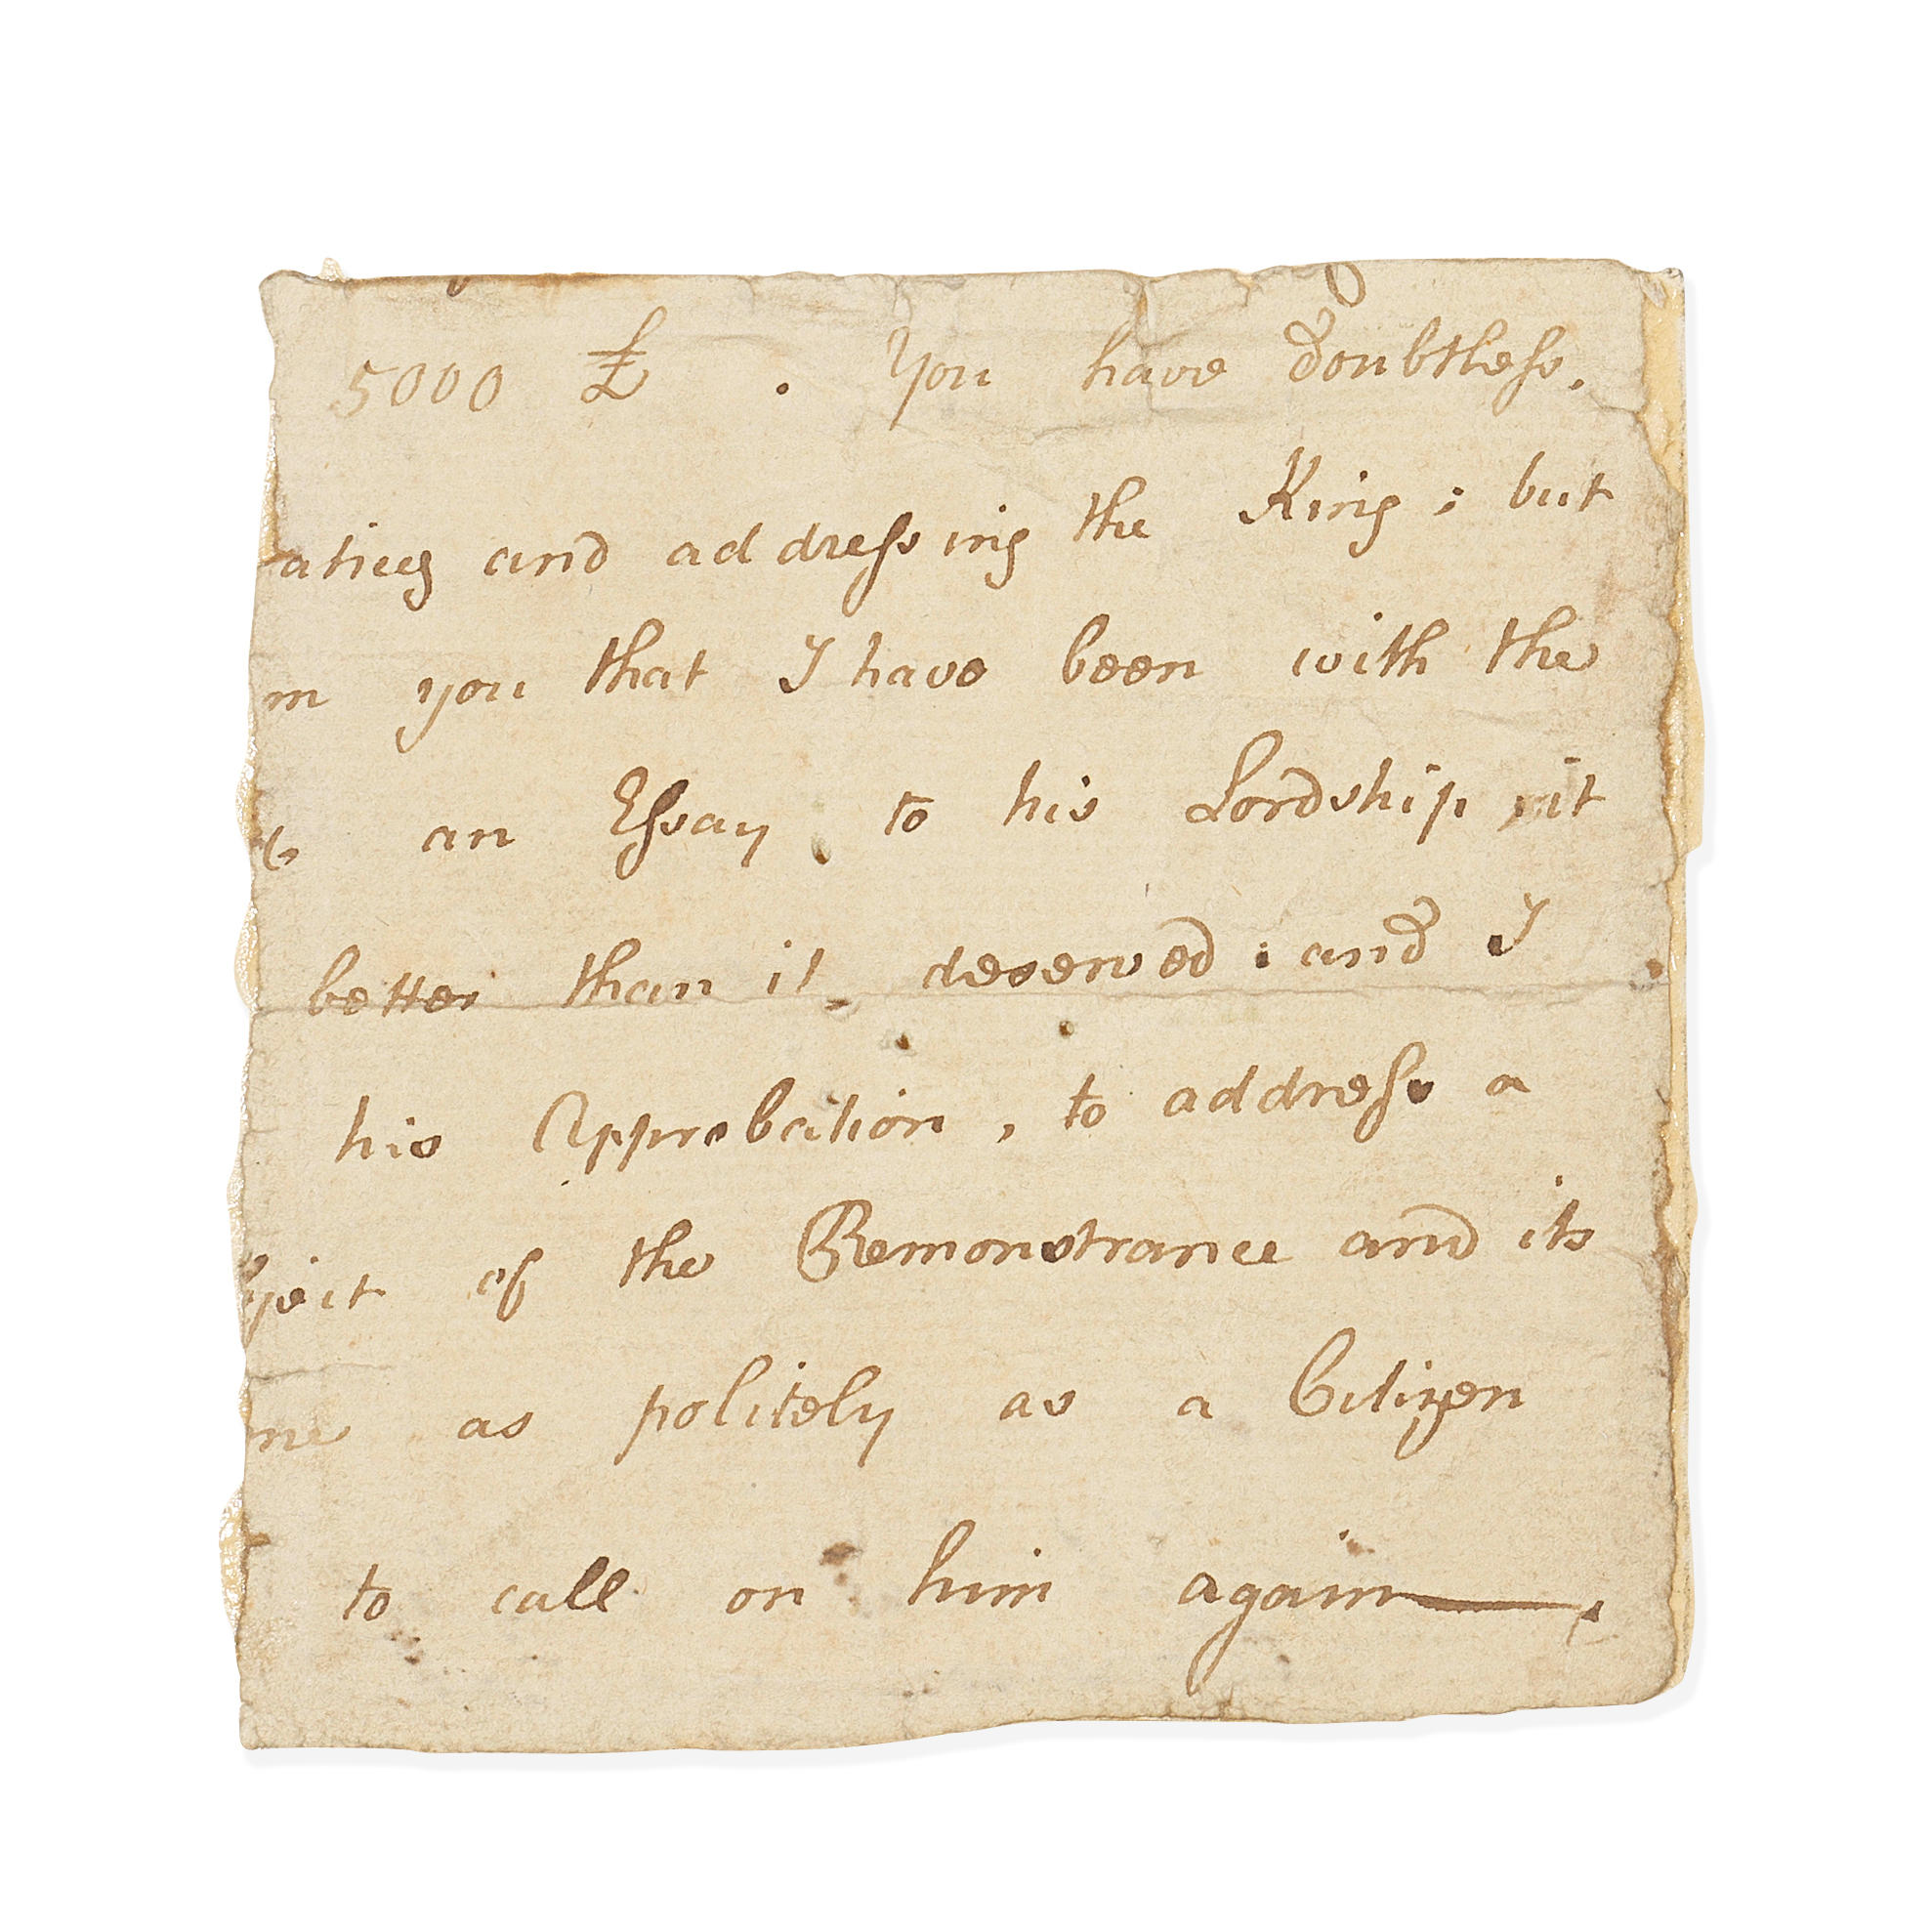 5000 £ . You have doubtless,
and addressing the King; but
m you that I have been with the
an Essay, to his Lordship, it
better than it deserved: and I
his Approbation, to address a
of the Remonstrance and its
me as politely as a Citizen
to call on him again—.